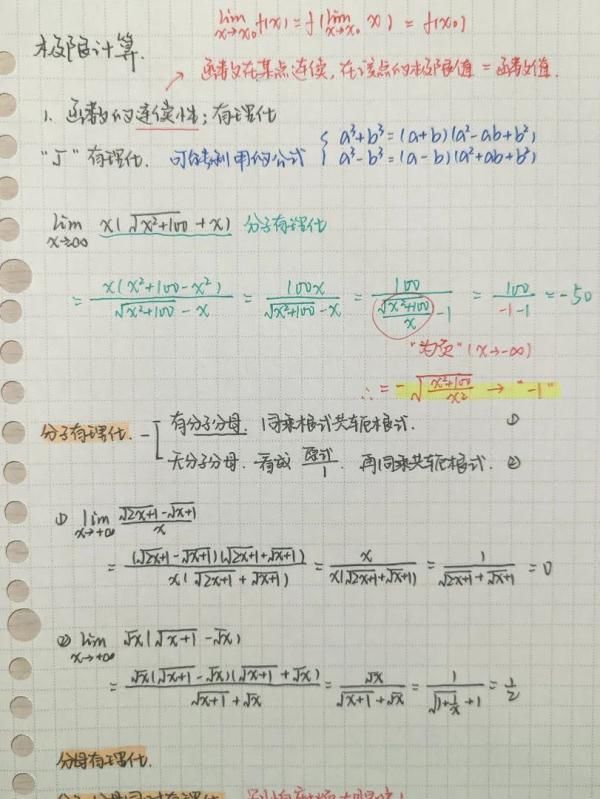 lim x→x₀ f(x) = f(lim x→x₀ x) = f(x₀)
极限计算.
↗ 函数在某点连续, 在该点的极限值 = 函数值.
1. 函数的连续性; 有理化
"√" 有理化. 可能利用的公式 { a³+b³=(a+b)(a²-ab+b²)
a³-b³=(a-b)(a²+ab+b²)
lim x→-∞ x(√(x²+100) + x) 分子有理化
= x(x²+100-x²)/(√(x²+100) - x) = 100x/(√(x²+100) - x) = 100/(√(x²+100)/x - 1) = 100/(-1-1) = -50
"为负" (x→-∞)
∴ = -√((x²+100)/x²) → "-1"
分子有理化. - [ 有分子分母. 同乘根式共轭根式. ①
无分子分母. 看成 原式/1. 再同乘共轭根式. ②
① lim x→+∞ (√(2x+1) - √(x+1))/x
= (√(2x+1) - √(x+1))(√(2x+1) + √(x+1))/(x(√(2x+1) + √(x+1))) = x/(x(√(2x+1) + √(x+1))) = 1/(√(2x+1) + √(x+1)) = 0
② lim x→+∞ √x(√(x+1) - √x)
= √x(√(x+1) - √x)(√(x+1) + √x)/(√(x+1) + √x) = √x/(√(x+1) + √x) = 1/(√(1+1/x) + 1) = 1/2
分母有理化.